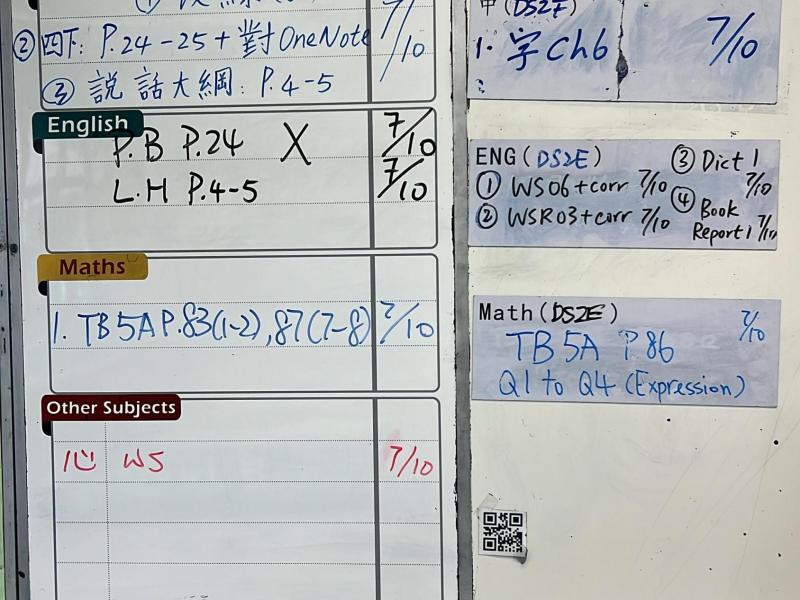 7/10
② 四下: P.24-25 + 對OneNote
③ 説話大綱: P.4-5
English
P.B P.24 X 7/10
L.H P.4-5 7/10
Maths
1. TB 5A P.83(1-2), 87(7-8) 7/10
Other Subjects
心 WS 7/10
中 (DS2E)
1. 字 Ch6 7/10
ENG (DS2E)
① WS06+corr 7/10
② WSR03+corr 7/10
③ Dict 1 7/10
④ Book Report 1 7/10
Math (DS2E) 7/10
TB 5A P.86
Q1 to Q4 (Expression)